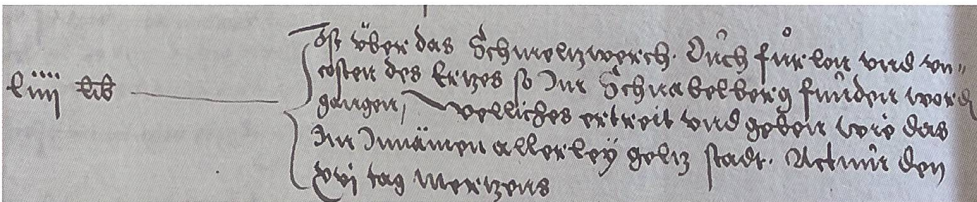 Ist über das Schmeltzwerch. Ouch fůrlon vnd vn=
liiii lib costen des Ertzes so Im Schnabelberg funden word
gangen, welliches ertreit vnd geben wie das
Im Innämen allerley geltz stadt. Actum den
xvj tag Mertzens